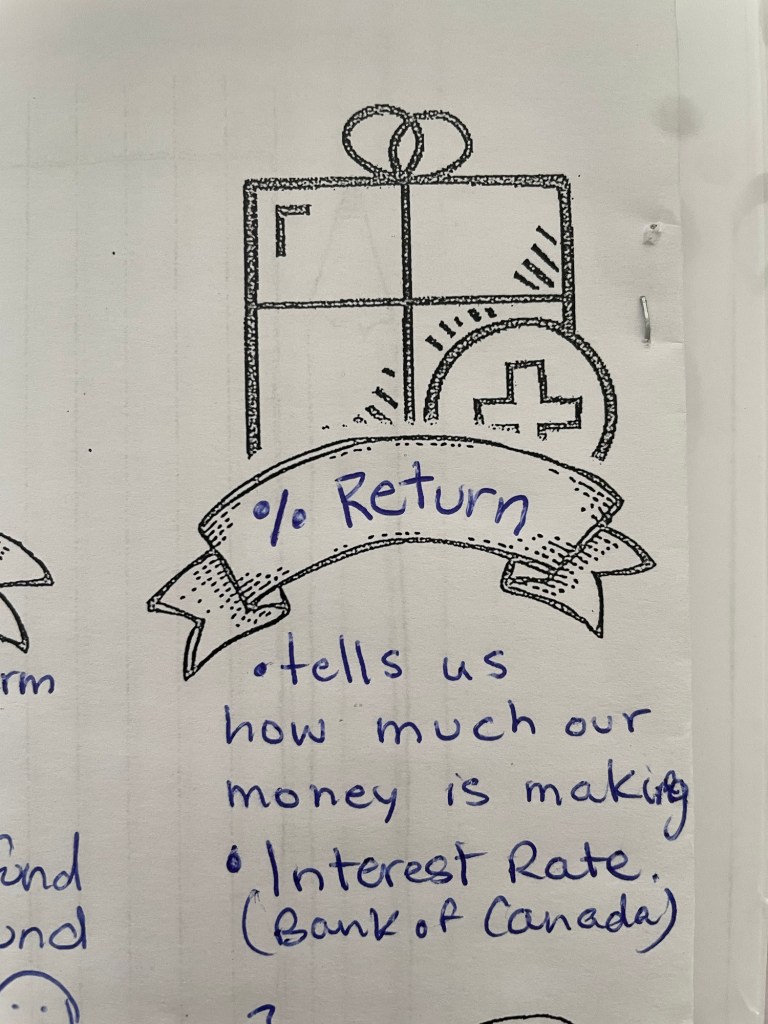 % Return
• tells us
how much our
money is making
• Interest Rate.
(Bank of Canada)